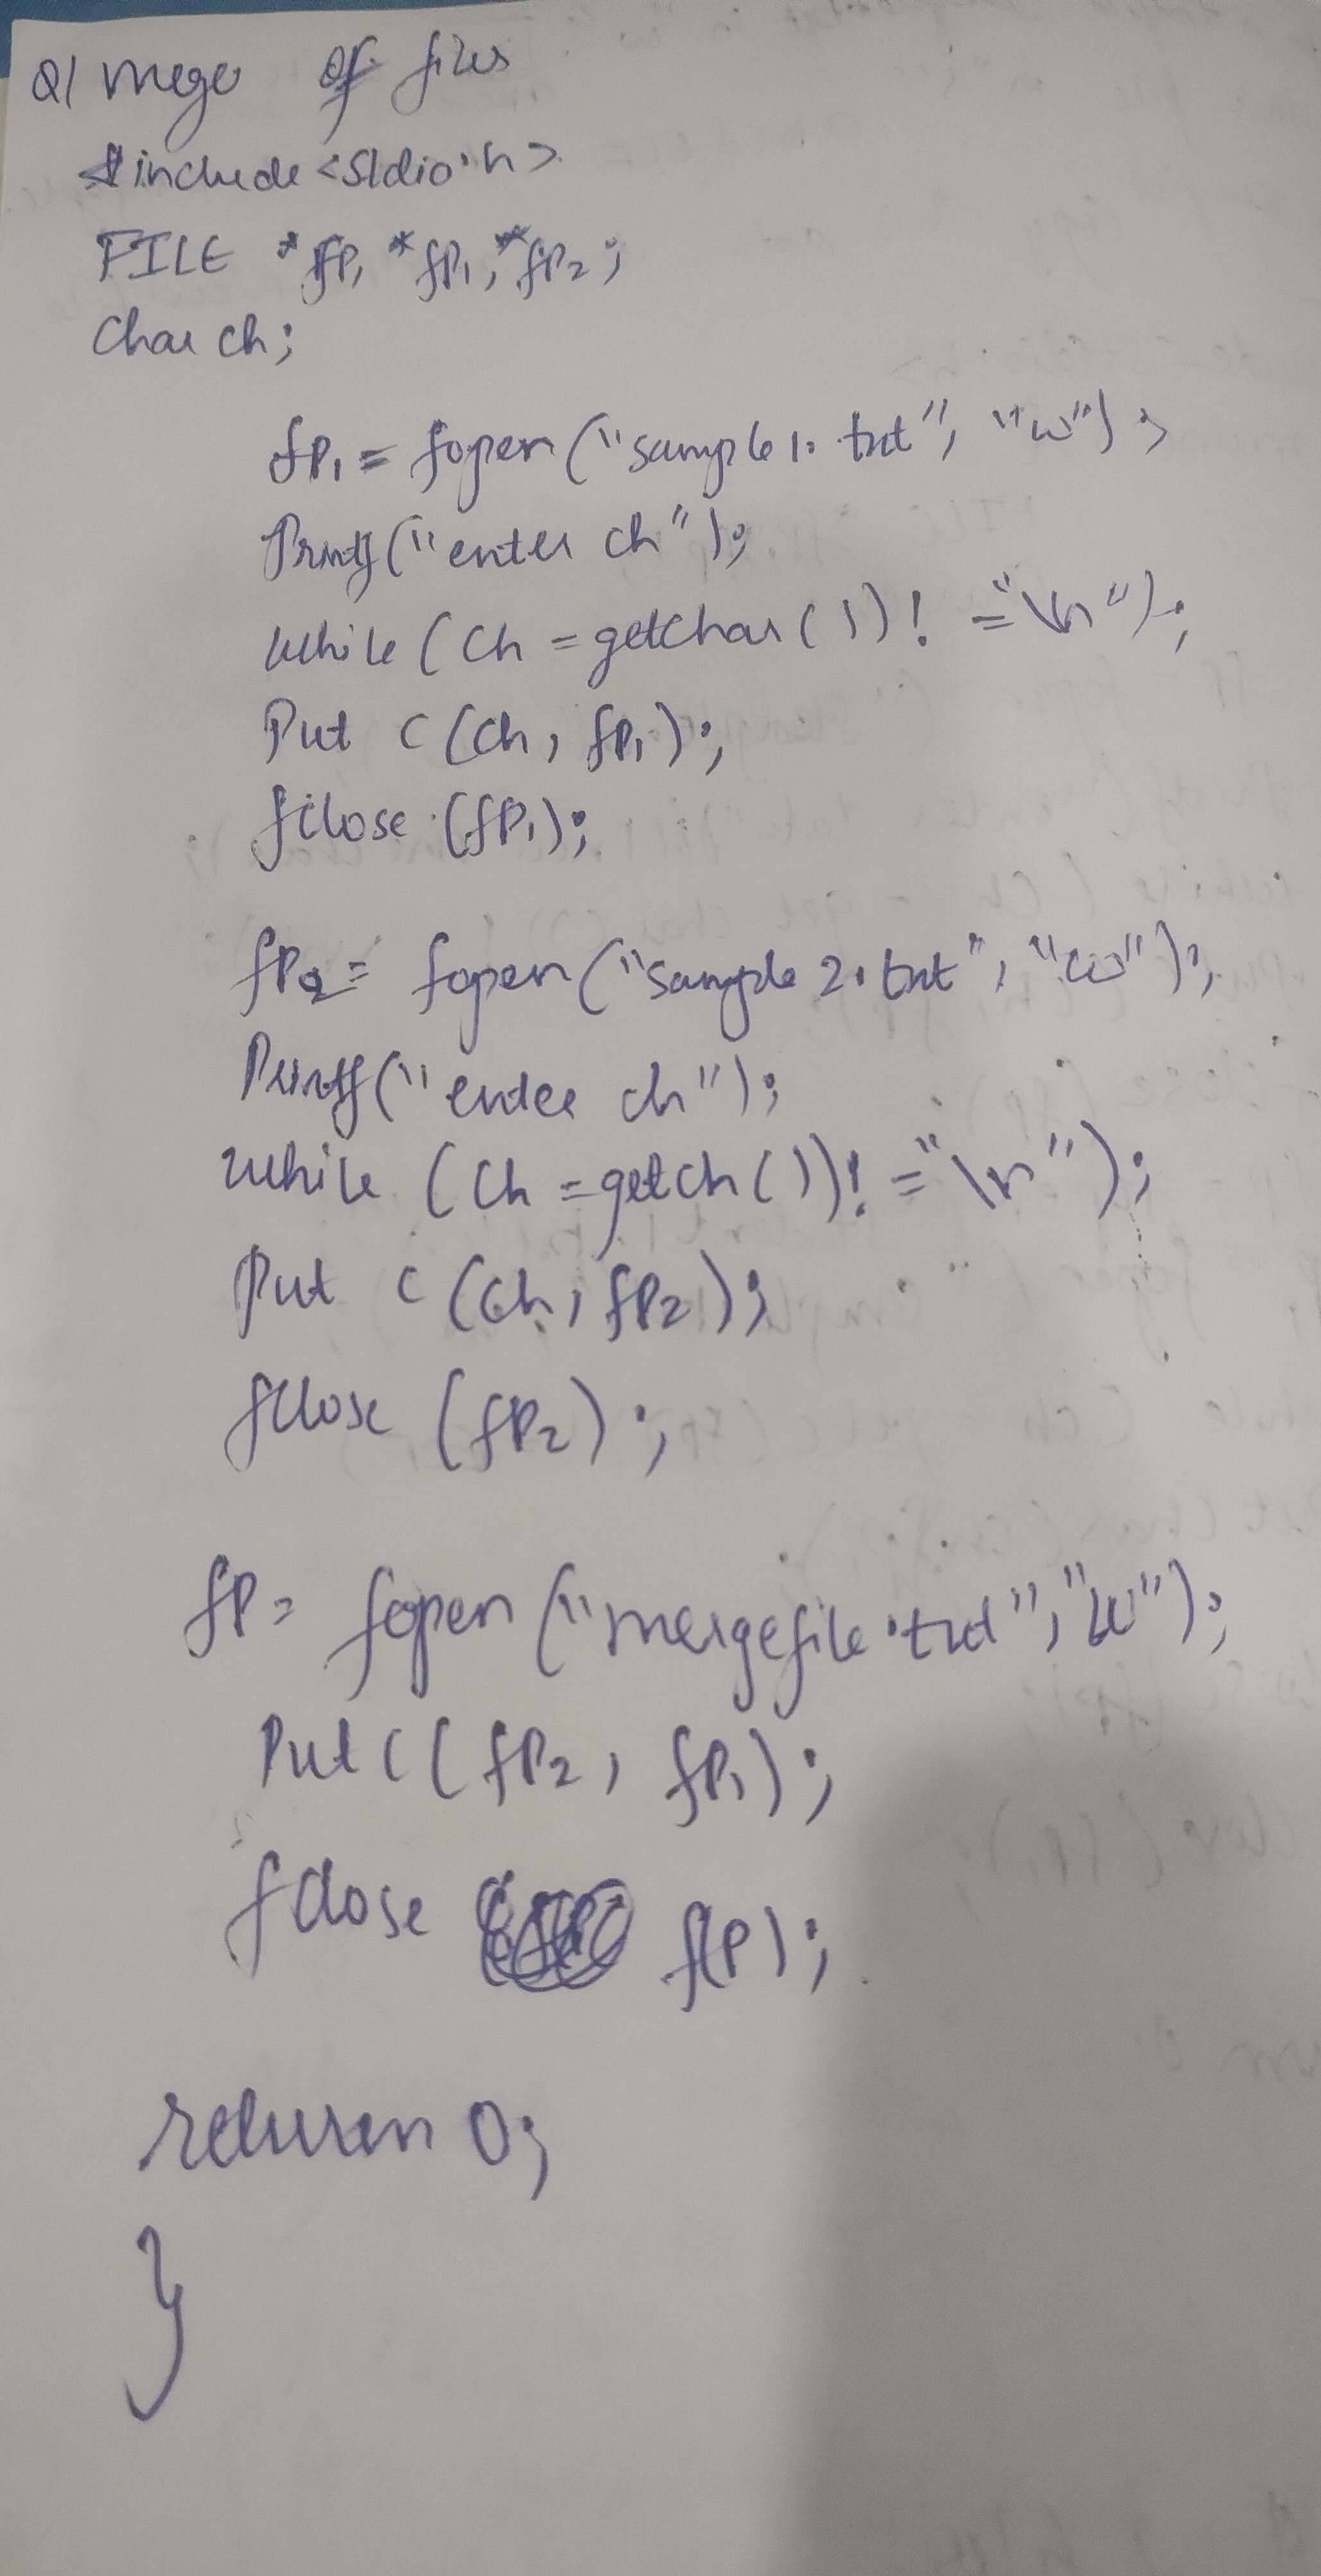 Q1 merge of files
#include <stdio.h>
FILE *fp, *fp1, *fp2;
Char ch;
fp1 = fopen ("sample 1. txt", "w");
Printf ("enter ch");
while (Ch = getchar ( )) ! = "\n");
Put c (ch, fp1);
fclose (fp1);
fp2 = fopen ("sample 2. txt", "w");
Printf ("enter ch");
while (Ch = getch ( ))! = "\n");
Put c (ch, fp2);
fclose (fp2);
fp = fopen ("mergefile.txt", "w");
Put c ( fp2, fp1);
fclose f(p);
return 0;
}